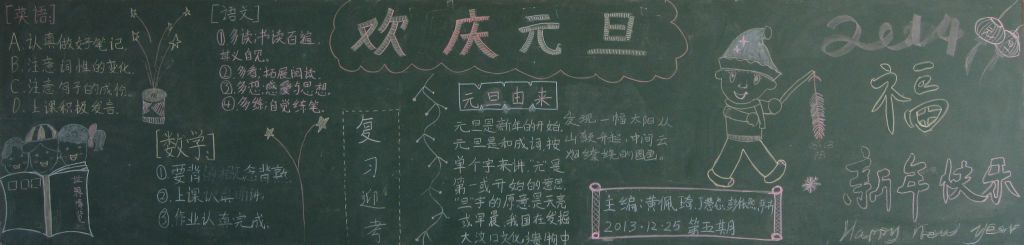 [英语]
A.认真做好笔记.
B.注意词性的变化.
C.注意句子的成份.
D.上课积极发言.
[语文]
①多读:书读百遍,
其义自见.
②多看:拓展阅读.
③多想:感受与思想.
④多练:自觉练笔.
[数学]
②上课认真听讲.
③作业认真完成.
欢庆元旦
复习迎考
元旦由来
元旦是新年的开始,
元旦是和成词,按
单个字来讲,"元"是
第一或开始的意思,
"旦"字的原意是天亮
或早晨.我国在发掘
大汶口文化遗物中
发现一幅太阳从
山颠升起,中间云
烟缭绕的图画。
主编:黄佩琦
2013.12.25 第五期
2014
福
新年快乐
Happy new year